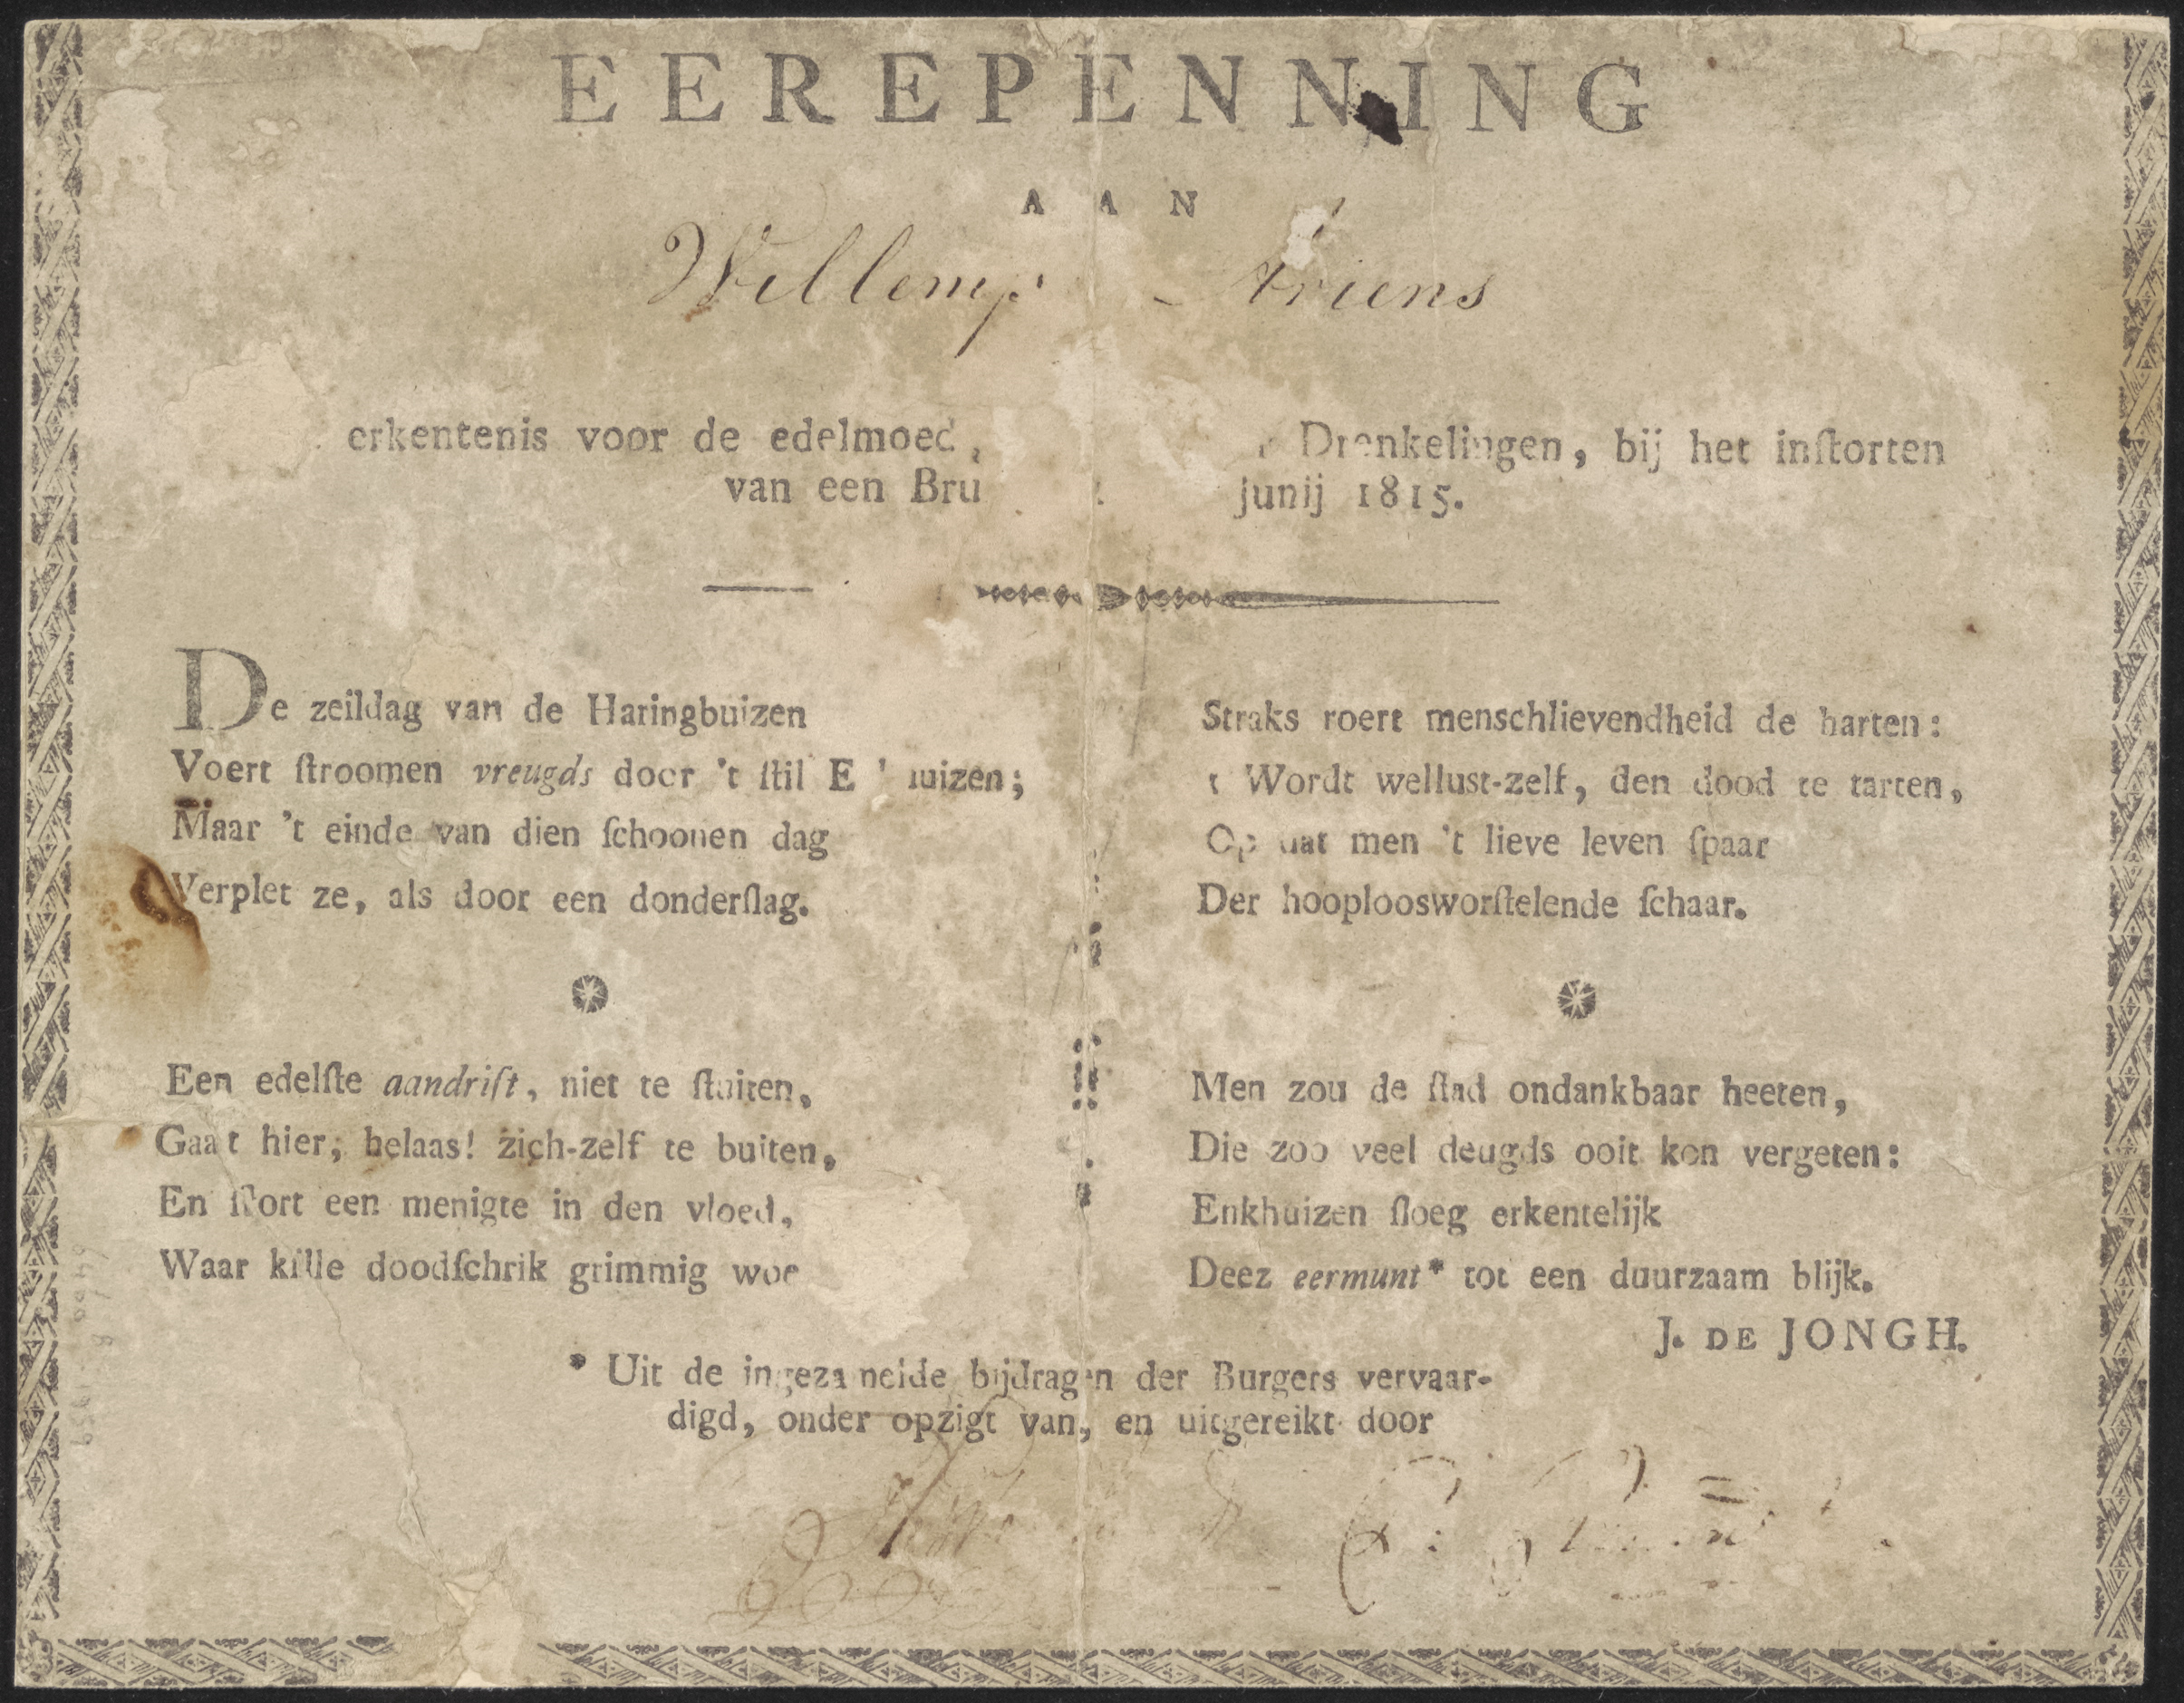 EEREPENNING
AAN
Willem
erkentenis voor de Drenkelingen, bij het inſtorten
van een junij 1815.
De zeildag van de Haringbuizen
Voert ſtroomen vreugds door 't ſtil
Maar 't einde van dien ſchoonen dag
Verplet ze, als door een donderſlag.
Een edelſte aandrift, niet te ſtuiten,
Gaat hier, helaas! zich-zelf te buiten,
En ſtort een menigte in den vloed,
Waar kille doodſchrik grimmig
Straks roert menschlievendheid de harten:
't Wordt wellust-zelf, den dood te tarten,
Op dat men 't lieve leven ſpaar
Der hooploosworſtelende ſchaar.
Men zou de ſtad ondankbaar heeten,
Die zoo veel deugds ooit kon vergeten:
Enkhuizen ſloeg erkentelijk
Deez eermunt* tot een duurzaam blijk.
J. DE JONGH.
* Uit de ingezamelde bijdragen der Burgers vervaar-
digd, onder opzigt van, en uitgereikt door